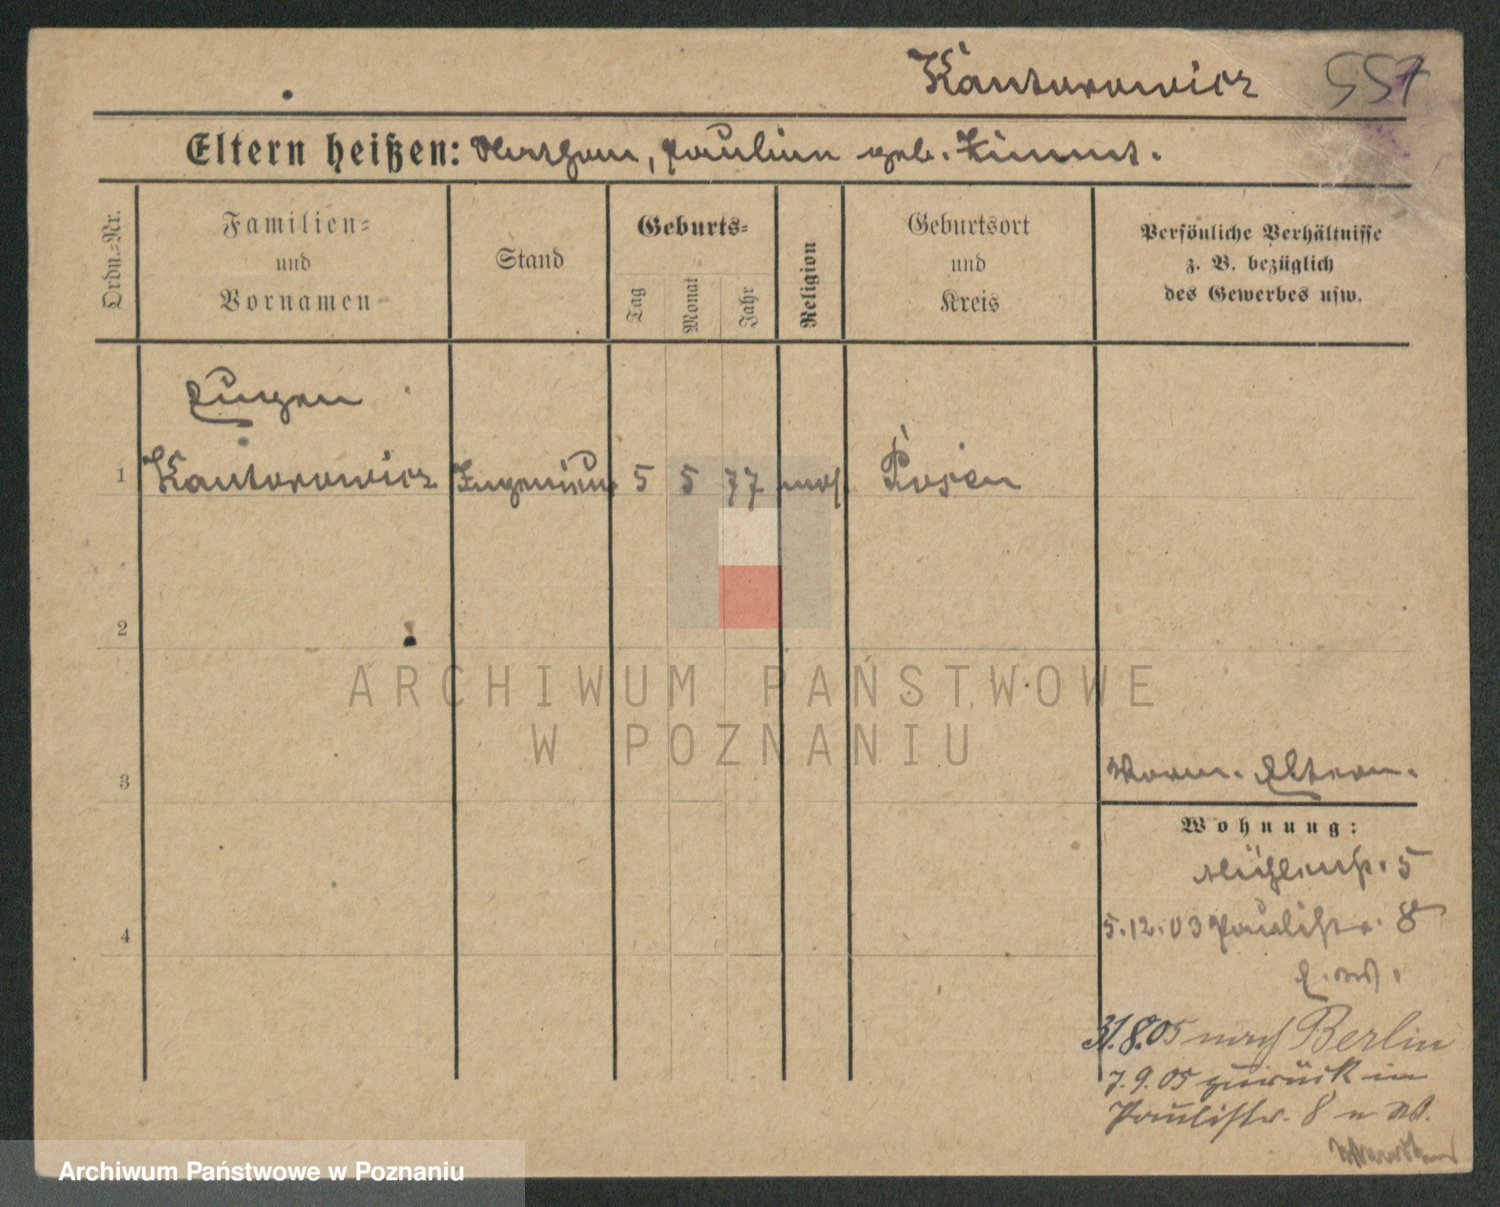 Kantorowicz 557
Eltern heißen: Nathan, Pauline geb. Zimmt.
Ordn.-Nr.
Familien-
und
Vornamen
Stand
Geburts-
Tag
Monat
Jahr
Religion
Geburtsort
und
Kreis
Persönliche Verhältnisse
z. B. bezüglich
des Gewerbes usw.
Eugen
1 Kantorowicz Ingenieur 5 5 77 mos. Posen
2
3
4
ARCHIWUM PAŃSTWOWE
W POZNANIU
Eltern.
Wohnung:
Mühlenstr. 5
5.12.03 Paulistr. 8
31.8.05 nach Berlin
7.9.05 zurück in
Paulistr. 8
Archiwum Państwowe w Poznaniu